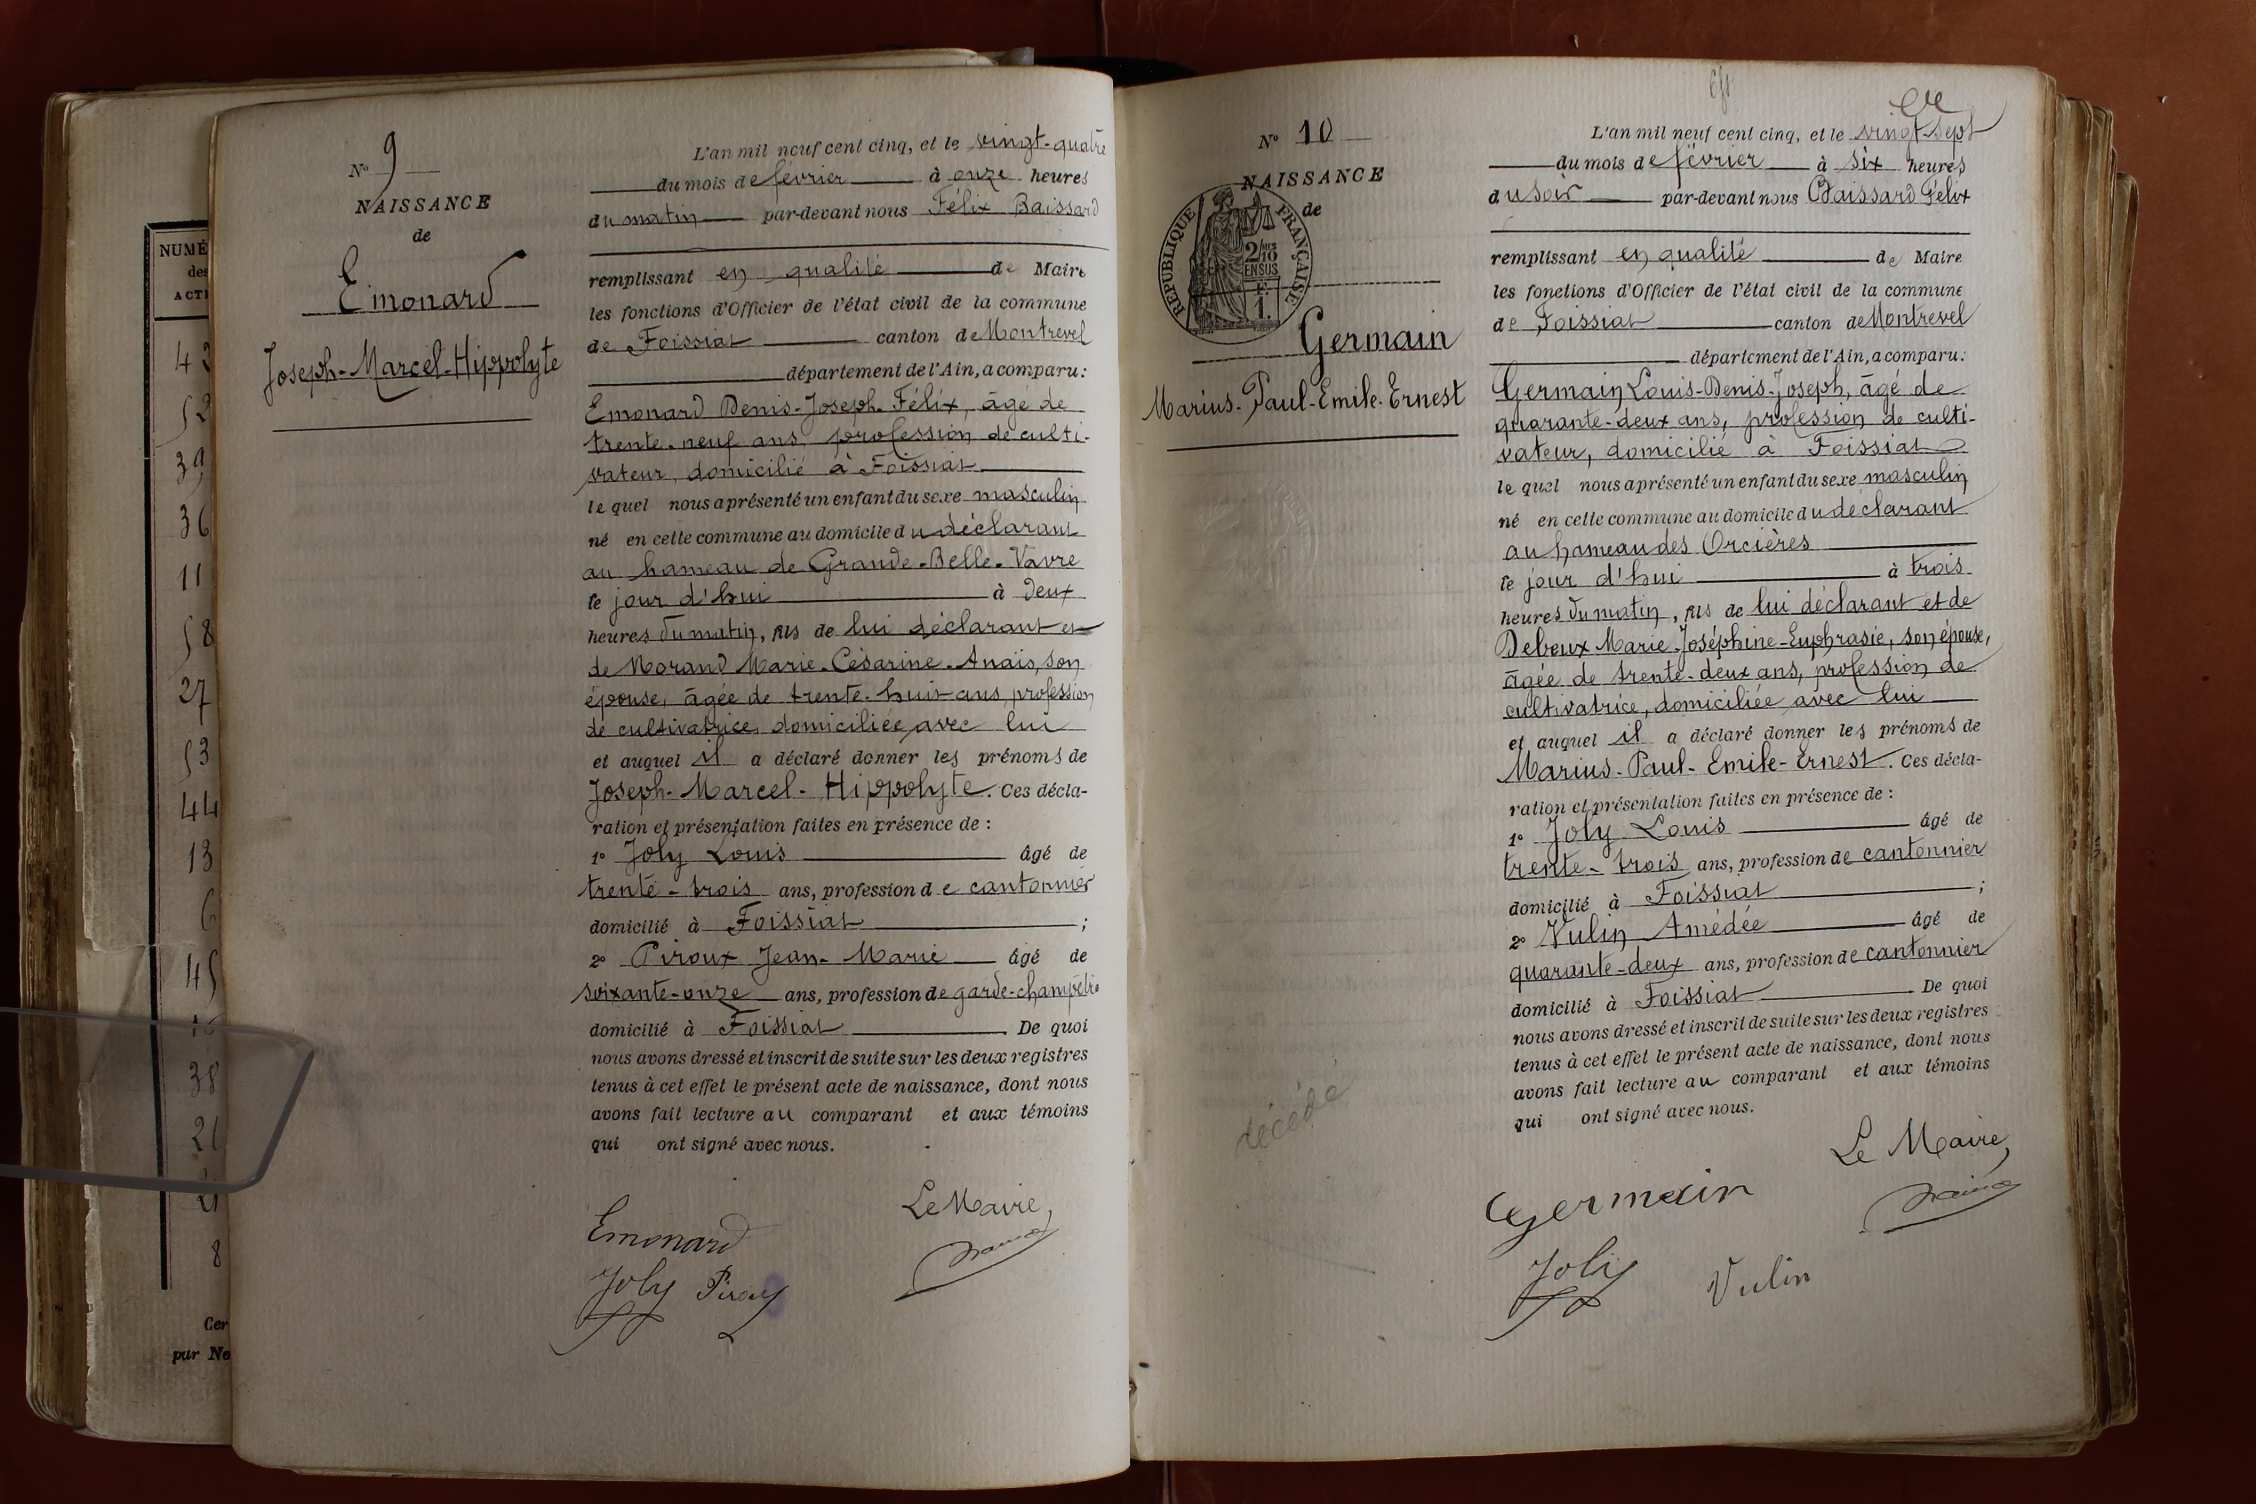 NUMÉ
des
ACT
43
52
39
36
11
58
27
53
44
13
6
45
38
21
8
Cer
par Ne
N° 9
NAISSANCE
de
Emonard
Joseph-Marcel-Hippolyte
L'an mil neuf cent cinq, et le vingt-quatre
du mois de février à onze heures
du matin par-devant nous Félix Baissard
remplissant en qualité de Maire
les fonctions d'Officier de l'état civil de la commune
de Foissiat canton de Montrevel
département de l'Ain, a comparu:
Emonard Denis-Joseph-Félix, âgé de
trente-neuf ans, profession de culti-
vateur, domicilié à Foissiat
lequel nous a présenté un enfant du sexe masculin
né en cette commune au domicile du déclarant
au hameau de Grande-Belle-Vavre
le jour d'hui à deux
heures du matin, fils de lui déclarant et
de Morand Marie-Césarine-Anaïs, son
épouse, âgée de trente-huit ans, profession
de cultivatrice, domiciliée avec lui
et auquel il a déclaré donner les prénoms de
Joseph-Marcel-Hippolyte. Ces décla-
ration et présentation faites en présence de :
1° Joly Louis âgé de
trente-trois ans, profession de cantonnier
domicilié à Foissiat ;
2° Piroux Jean-Marie âgé de
soixante-onze ans, profession de garde-champêtre
domicilié à Foissiat. De quoi
nous avons dressé et inscrit de suite sur les deux registres
tenus à cet effet le présent acte de naissance, dont nous
avons fait lecture au comparant et aux témoins
qui ont signé avec nous.
Le Maire,
Emonard
Joly Piroux
N° 10
NAISSANCE
de
REPUBLIQUE FRANÇAISE
2/10
EN SUS
1 F.
Germain
Marius-Paul-Emile-Ernest
décédé
L'an mil neuf cent cinq, et le vingt-sept
du mois de février à six heures
du soir par-devant nous Baissard Félix
remplissant en qualité de Maire
les fonctions d'Officier de l'état civil de la commune
de Foissiat canton de Montrevel
département de l'Ain, a comparu:
Germain Louis-Denis-Joseph, âgé de
quarante-deux ans, profession de culti-
vateur, domicilié à Foissiat
lequel nous a présenté un enfant du sexe masculin
né en cette commune au domicile du déclarant
au hameau des Orcières
le jour d'hui à trois
heures du matin, fils de lui déclarant et de
Deboux Marie-Joséphine-Euphrasie, son épouse,
âgée de trente-deux ans, profession de
cultivatrice, domiciliée avec lui
et auquel il a déclaré donner les prénoms de
Marius-Paul-Emile-Ernest. Ces décla-
ration et présentation faites en présence de :
1° Joly Louis âgé de
trente-trois ans, profession de cantonnier
domicilié à Foissiat ;
2° Vulin Amédée âgé de
quarante-deux ans, profession de cantonnier
domicilié à Foissiat. De quoi
nous avons dressé et inscrit de suite sur les deux registres
tenus à cet effet le présent acte de naissance, dont nous
avons fait lecture au comparant et aux témoins
qui ont signé avec nous.
Le Maire,
Germain
Joly Vulin